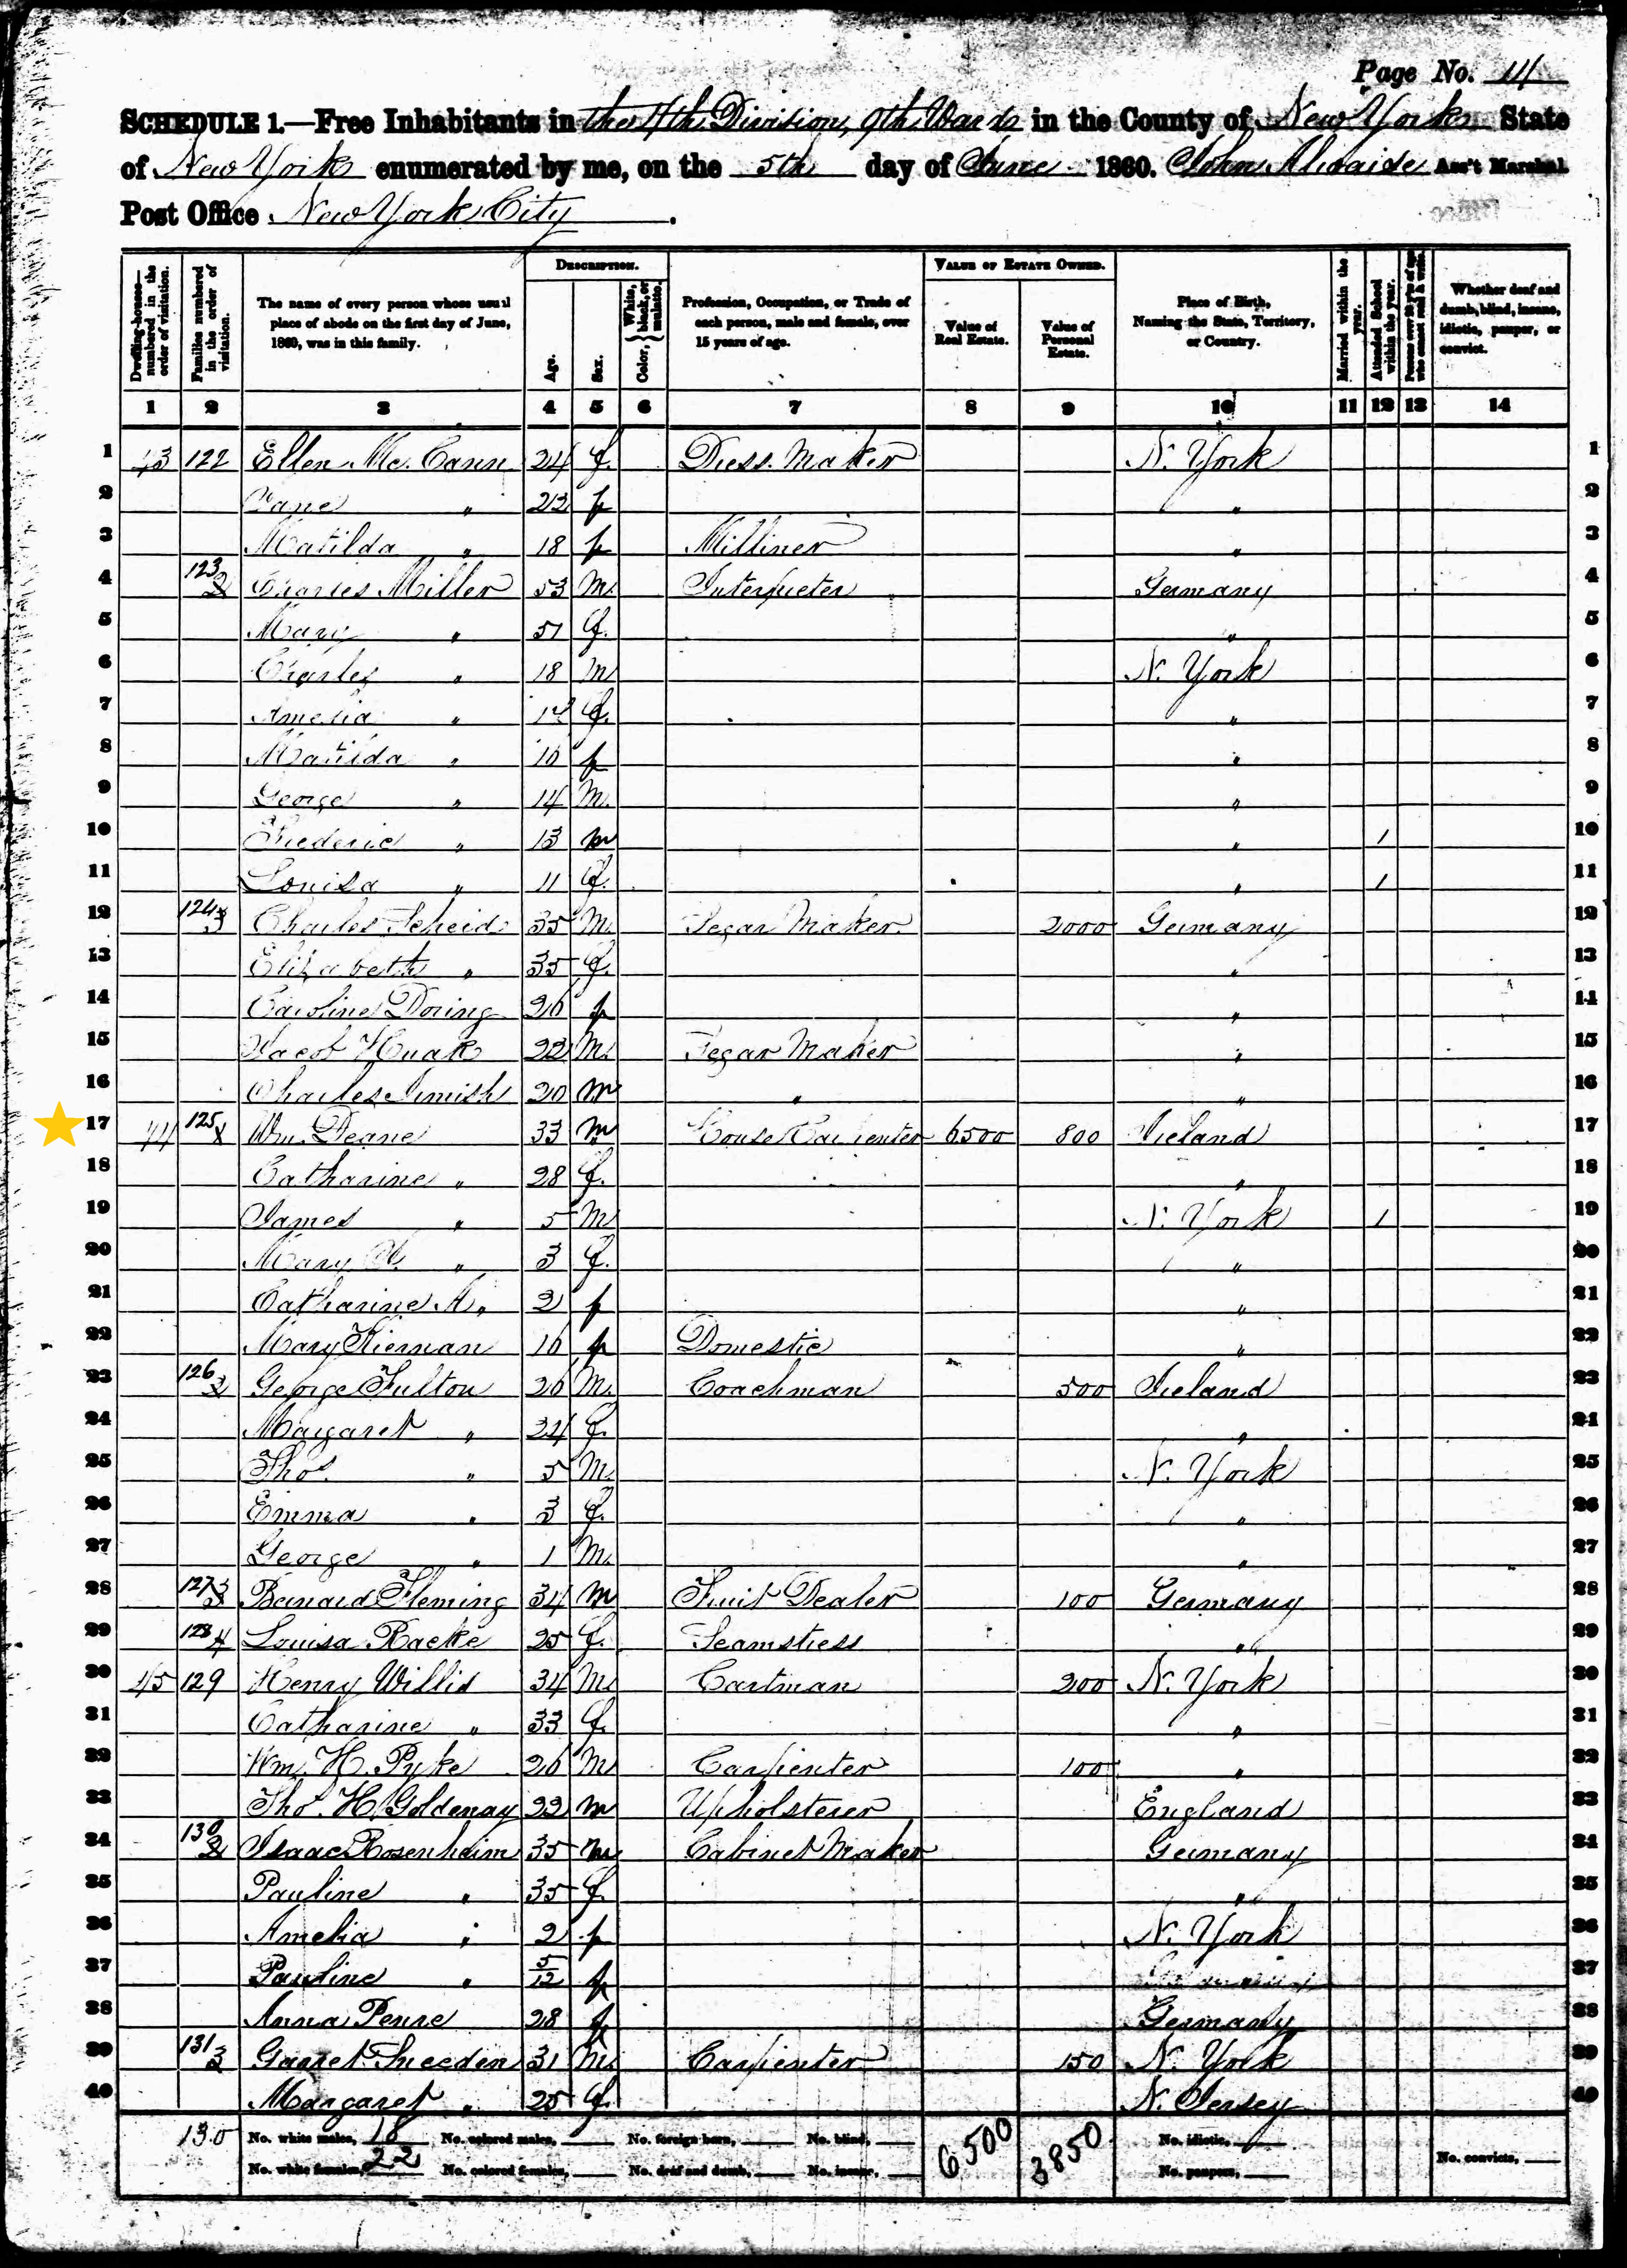 Page No. 14
SCHEDULE 1.—Free Inhabitants in the 4th Division, 9th Ward in the County of New York State
of New York enumerated by me, on the 5th day of June 1860. John Ass't Marshal.
Post Office New York City.
DESCRIPTION. VALUE OF ESTATE OWNED.
Dwelling-houses—numbered in the order of visitation. Families numbered in the order of visitation. The name of every person whose usual place of abode on the first day of June, 1860, was in this family. Age. Sex. Color, White, black, or mulatto. Profession, Occupation, or Trade of each person, male and female, over 15 years of age. Value of Real Estate. Value of Personal Estate. Place of Birth, Naming the State, Territory, or Country. Married within the year. Attended School within the year. Persons over 20 y'rs of age who cannot read & write. Whether deaf and dumb, blind, insane, idiotic, pauper, or convict.
1 2 3 4 5 6 7 8 9 10 11 12 13 14
1 43 122 Ellen Mc. Cann 24 f. Dress Maker N. York 1
2 Jane " 23 f " 2
3 Matilda " 18 f Milliner " 3
4 123 2 Charles Miller 53 M. Interpreter Germany 4
5 Mary " 51 f. " 5
6 Charles " 18 M N. York 6
7 Amelia " f. " 7
8 Matilda " 16 f " 8
9 George " 14 M. " 9
10 Frederic " 13 m " 1 10
11 Louisa " 11 f. " 1 11
12 124 3 Charles Scheid 35 M. Segar Maker 2000 Germany 12
13 Elizabeth " 35 f. " 13
14 Caroline Doring 26 f " 14
15 Jacob 22 M. Segar Maker " 15
16 Charles 20 m " " 16
17 44 125 Wm. Deane 33 m House Carpenter 6500 800 Ireland 17
18 Catharine " 28 f. " 18
19 James " 5 M N. York 1 19
20 Mary " 3 f. " 20
21 Catharine A. " 2 f " 21
22 Mary Kiernan 16 f Domestic " 22
23 126 2 George Fulton 26 M. Coachman 500 Ireland 23
24 Margaret " 24 f. " 24
25 Thos. " 5 M. N. York 25
26 Emma " 3 f. " 26
27 George " 1 M. " 27
28 127 3 Barnard Fleming 34 m Fruit Dealer 100 Germany 28
29 128 4 Louisa Racke 25 f. Seamstress " 29
30 45 129 Henry Willis 34 M. Cartman 200 N. York 30
31 Catharine " 33 f. " 31
32 Wm. H. Pyke 26 M Carpenter 100 " 32
33 Thos. H. Goldenay 22 m Upholsterer England 33
34 130 2 Isaac Rosenheim 35 m Cabinet Maker Germany 34
35 Pauline " 35 f " 35
36 Amelia " 2 f N. York 36
37 Pauline " 5/12 f 37
38 Anna Penre 28 f Germany 38
39 131 3 Garret Sneeden 31 M. Carpenter 150 N. York 39
40 Margaret " 25 f. N. Jersey 40
130 No. white males, 18 No. colored males, No. foreign born, No. blind, 6500 3850 No. idiotic,
No. white females, 22 No. colored females, No. deaf and dumb, No. insane, No. paupers, No. convicts,